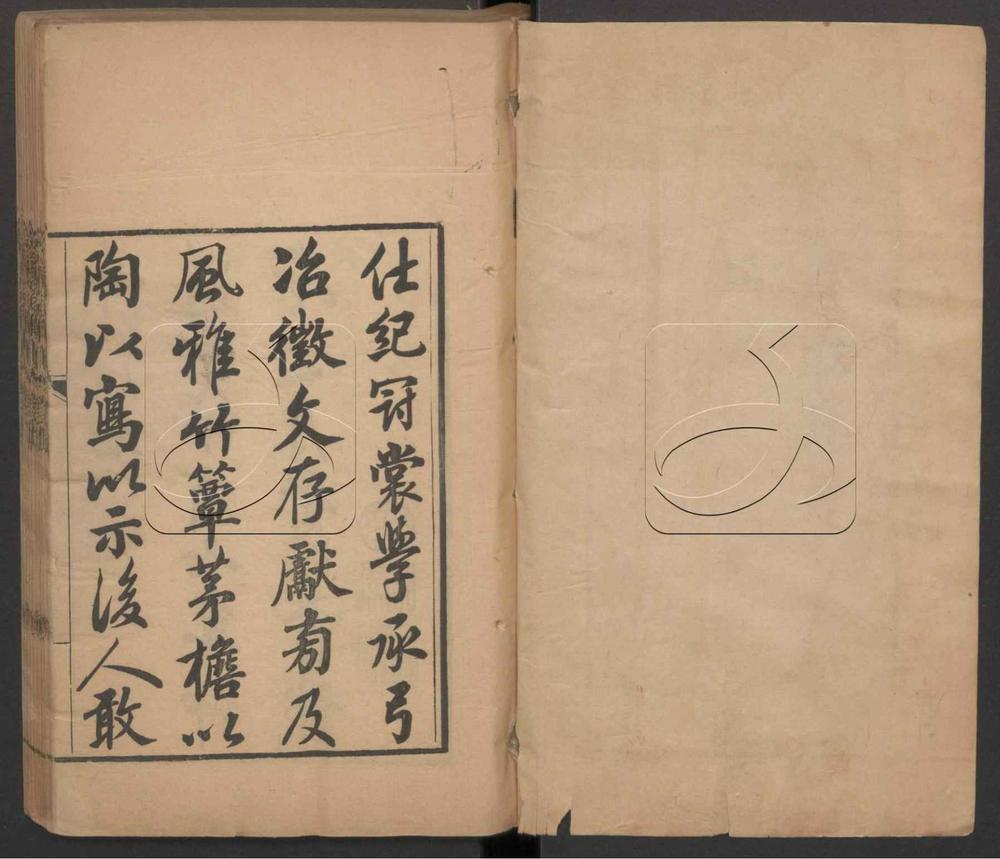 仕紀冠裳學承弓
冶徵文存獻菊及
風雅竹簟茅檐以
陶以寫以示後人敢